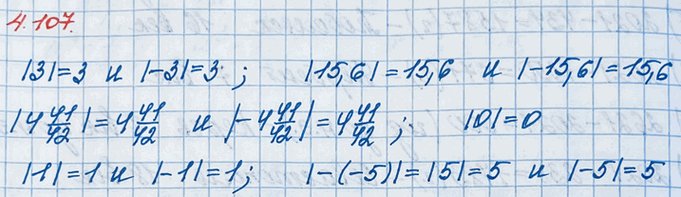 4.107.
|3|=3 и |-3|=3; |15,6|=15,6 и |-15,6|=15,6
|4 41/42|=4 41/42 и |-4 41/42|=4 41/42; |0|=0
|-1|=1 и |-1|=1; |-(-5)|=|5|=5 и |-5|=5